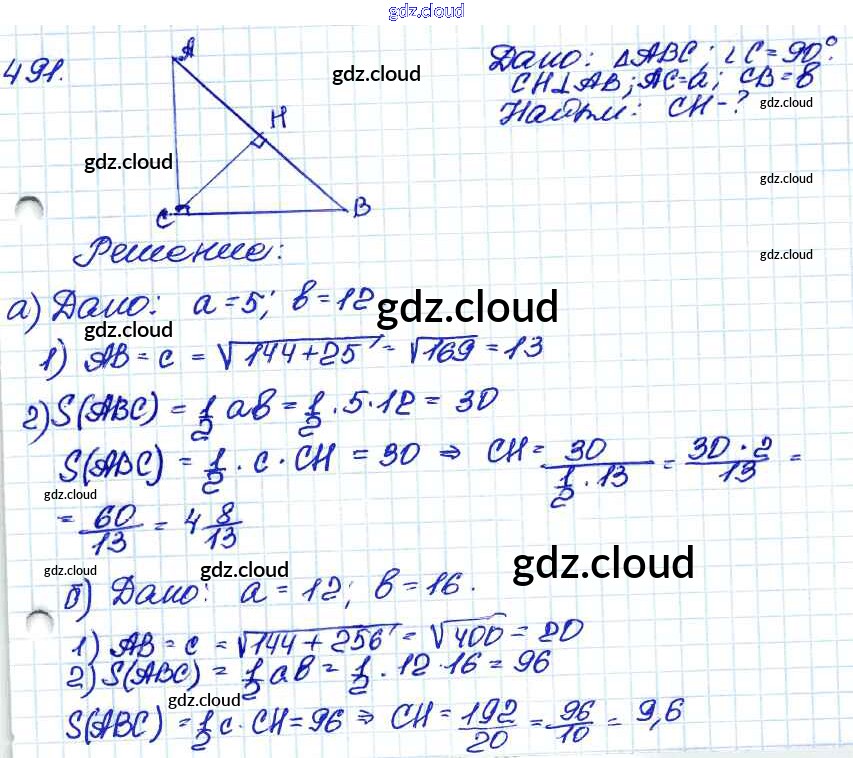 gdz.cloud
491.
A
H
C
B
Дано: △ABC; ∠C=90°.
CH⊥AB; AC=a; CB=в
Найти: CH-?
gdz.cloud
gdz.cloud
gdz.cloud
gdz.cloud
gdz.cloud
Решение:
а) Дано: a=5; в=12 gdz.cloud
gdz.cloud
1) AB = c = √144+25 = √169 = 13
2) S(ABC) = 1/2 aв = 1/2 · 5 · 12 = 30
S(ABC) = 1/2 · c · CH = 30 ⇒ CH = 30/(1/2 · 13) = 30 · 2/13 =
gdz.cloud
= 60/13 = 4 8/13
gdz.cloud gdz.cloud gdz.cloud
б) Дано: a = 12; в = 16.
1) AB = c = √144 + 256 = √400 = 20
2) S(ABC) = 1/2 aв = 1/2 · 12 · 16 = 96
gdz.cloud
S(ABC) = 1/2 c · CH = 96 ⇒ CH = 192/20 = 96/10 = 9,6
gdz.cloud